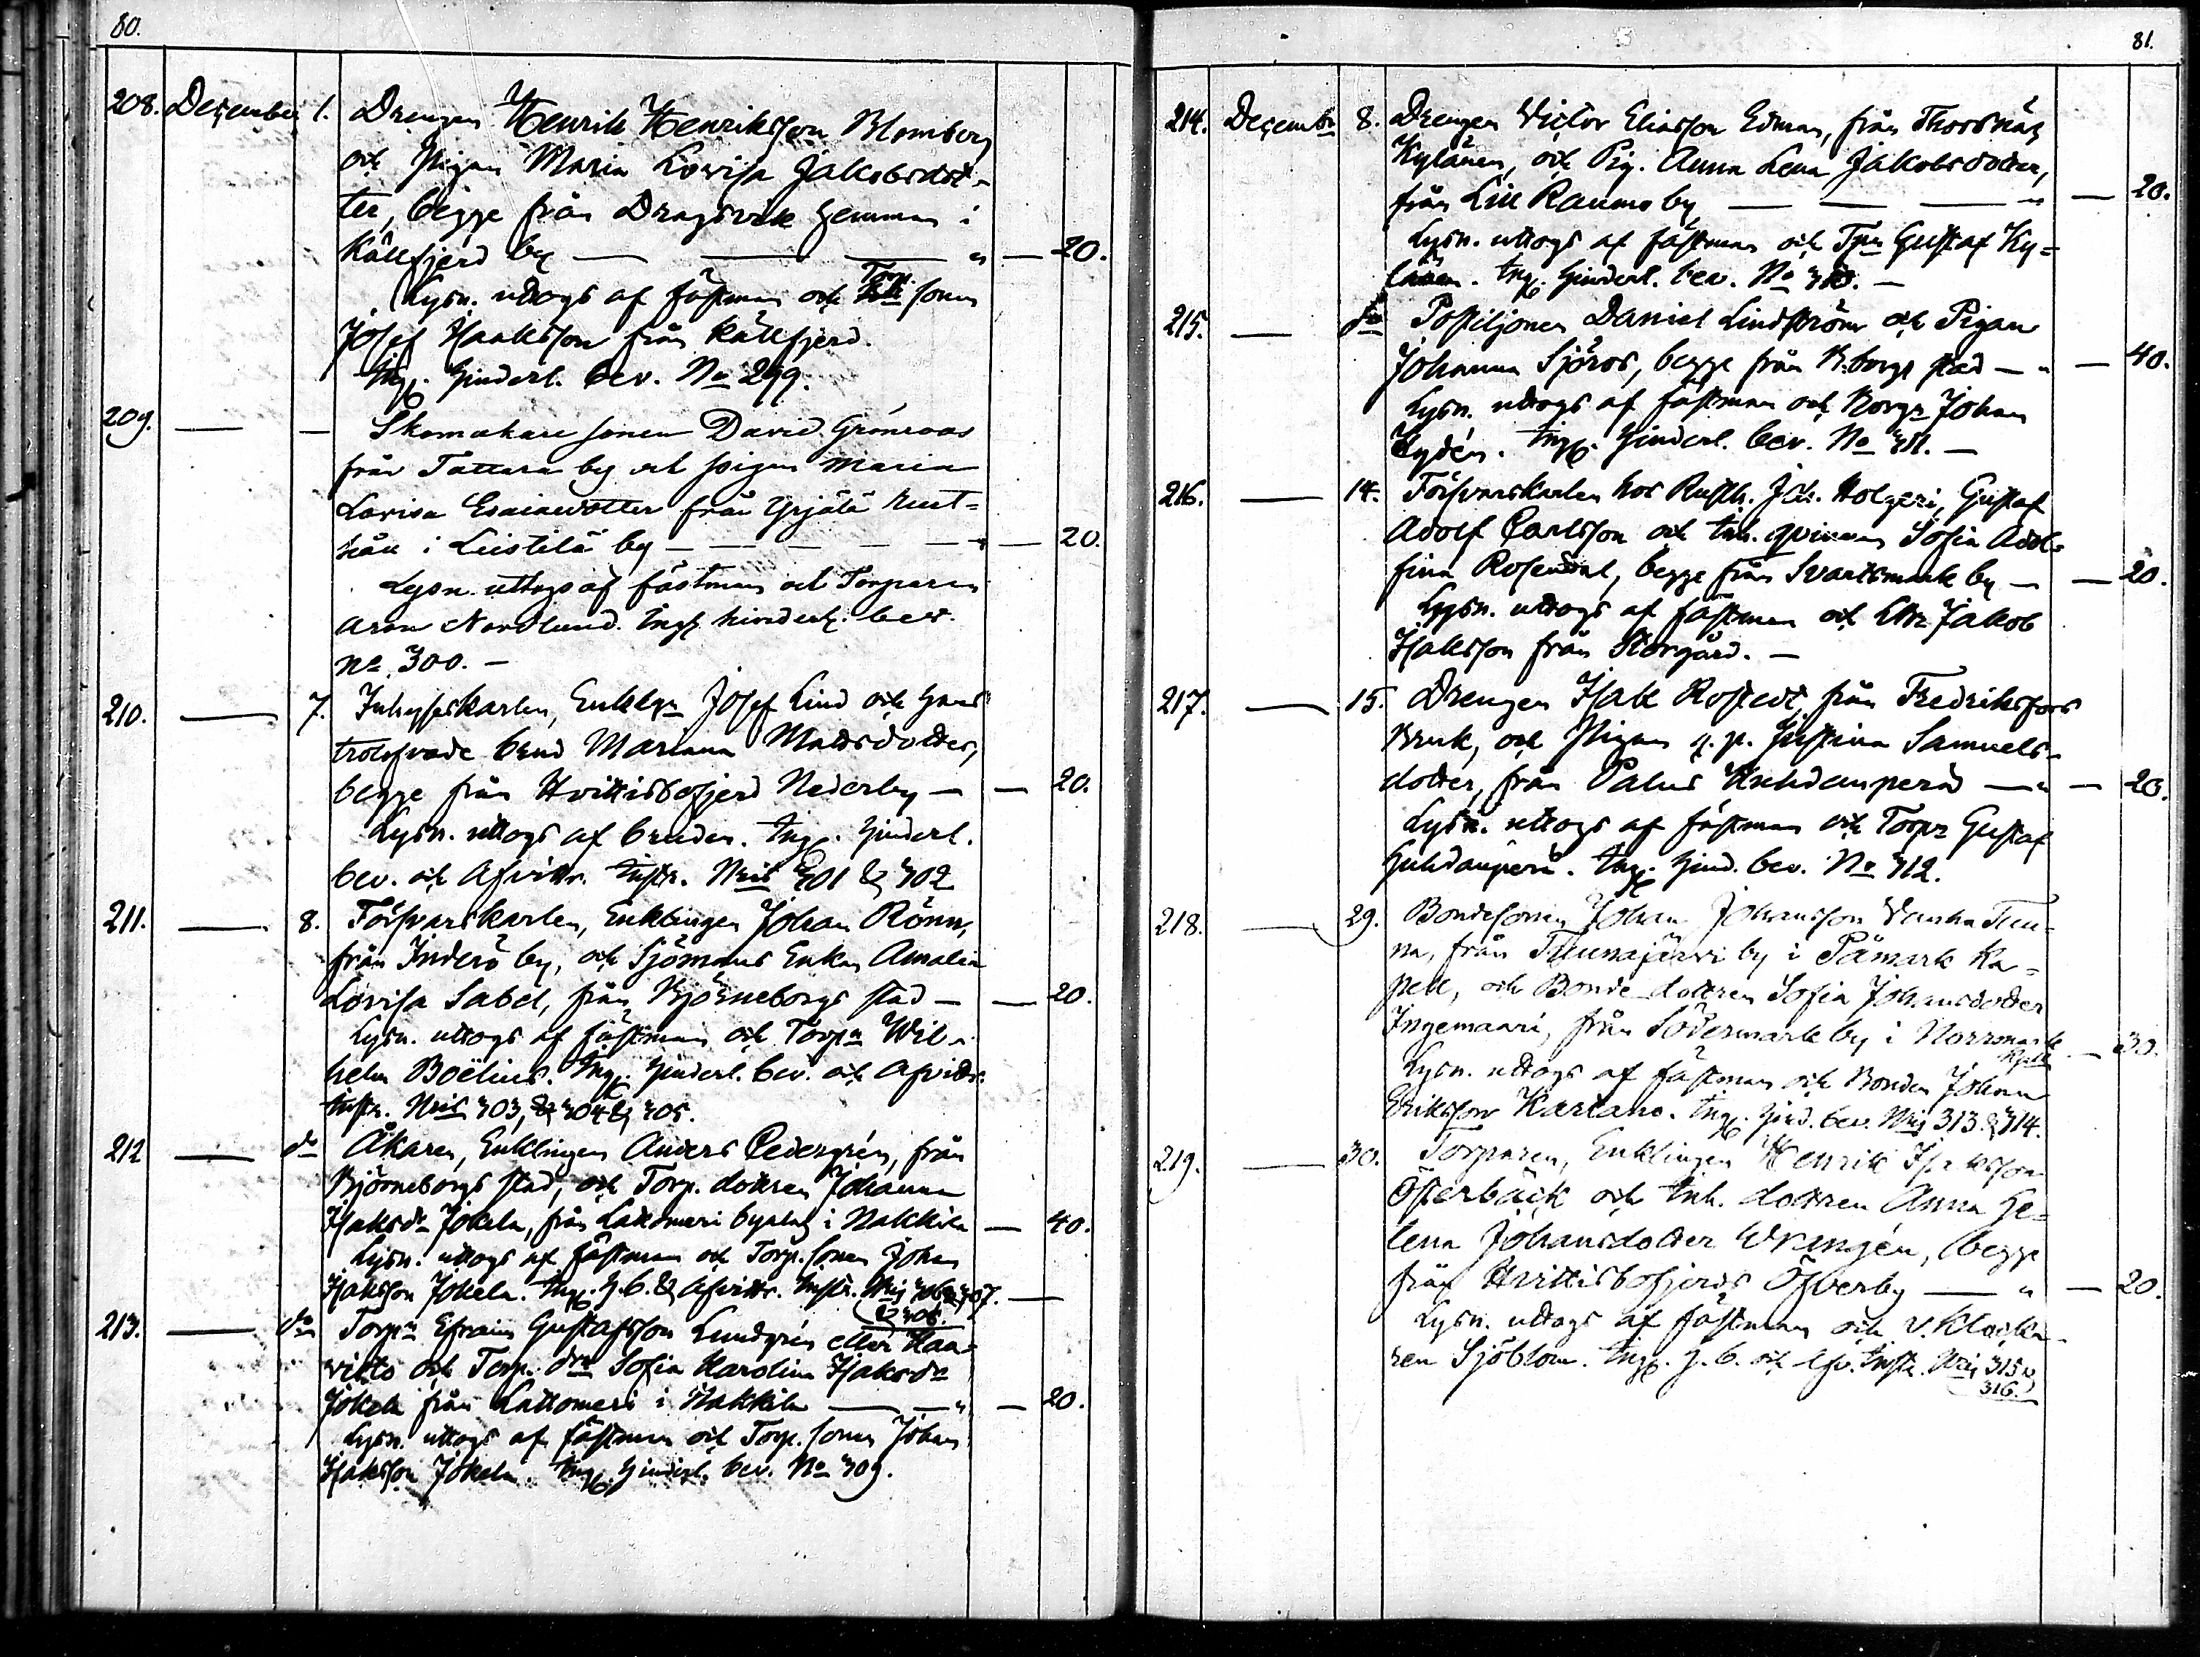 80.
208. December 1. Drengen Henrik Henriksson Blomberg
och Pigan Maria Lovisa Jakobsdot-
ter, begge från Dragsvik hemman i
Källfjerd by — — — " — 20.
Lysn. uttogs af fästman och Torp. sonen
Josef Isaksson från Källfjerd.
Ing. hinderl. bev. No 299.
209. — — Skomakare sonen David Grönroos
från Tattara by och pigan Maria
Lovisa Esaiaedotter från Yrjälä rust-
håll i Leistilä by — — — — — " — 20.
Lysn. uttogs af fästman och Torparen
Aron Nordlund. Ing. hinderl. bev.
No 300. —
210. — 7. Inhyseskarlen, Enklgn Josef Lind och hans
trolofvade brud Mariana Mattsdotter,
begge från Hvittisbofjerd Nederby — — 20.
Lysn. uttogs af bruden. Ing. hinderl.
bev. och Afvittr. Instr. Nris 301 & 302
211. — 8. Försvarskarlen, Enklingen Johan Rönn,
från Inderö by, och Sjömans Enkan Amalia
Lovisa Sabel, från Björneborgs stad — — 20.
Lysn. uttogs af fästman och Torpn Wil-
helm Boëlius. Ing. hinderl. bev. och Afvittr.
Instr. Nris 303, & 304 & 305.
212 — do Åkaren, Enklingen Anders Cedergrén, från
Björneborgs stad, och Torp. dottren Johanna
Isaksdr Jokela, från Lattomeri byalag i Nakkila — 40.
Lysn. uttogs af fästman och Torp. sonen Johan
Isaksson Jokela. Ing. h. b. & Afvittr. Instr. Nris 306 & 307. —
& 308.
213. — do Torpn Efraim Gustafsson Lundgrén eller Haa-
visto och Torp. dr Sofia Karolina Isaksdr
Jokela från Lattomeri i Nakkila — — " — 20.
Lysn. uttogs af fästman och Torp. sonen Johan
Isaksson Jokela. Ing. hinderl. bev. No 309.
81.
214. Decembr 8. Drengen Victor Eliasson Edman, från Thorsnäs
Kylänen, och Pig. Anna Lena Jakobsdotter,
från Lill Raumo by — — — " — 20.
Lysn. uttogs af fästman och Tpn Gustaf Ky-
länen. Ing. hinderl. bev. No 310. —
215. — do Postiljonen Daniel Lindström och Pigan
Johanna Sjöros, begge från B.borgs stad — " — 40.
Lysn. uttogs af fästman och Borgn Johan
Hydén. Ing. hinderl. bev. No 311. —
216. — 14. Försvarskarlen hos Rusth. Joh. Holgeri, Gustaf
Adolf Carlsson och Inh. qvinnan Sofia Adol-
fina Rosendal, begge från Svartsmark by — — 20.
Lysn. uttogs af fästman och Jakob
Isaksson från Storgård. —
217. — 15. Drengen Isak Rostedt, från Fredriksfors
Bruk, och Pigan Justina Samuels-
dotter, från Palus Huhdanperä — " — 20.
Lysn. uttogs af fästman och Torpn Gustaf
Huhdanperä. Ing. hind. bev. No 312.
218. — 29. Bondesonen Johan Johansson Vanha Tuu-
na, från Tuunajärvi by i Påmark Ka-
pell, och Bonde dottren Sofia Johansdotter
Ingemaari, från Södermark by i Norrmark
Kpell — 30.
Lysn. uttogs af fästman och Bonden Johan
Eriksson Kartano. Ing. hind. bev. Nris 313 & 314.
219. — 30. Torparen, Enklingen Henrik Isaksson
Österbäck och Inh. dottren Anna He-
lena Johansdotter Wrangén, begge
från Hvittisbofjerds Öfverby — " — 20.
Lysn. uttogs af fästman och v. Klocka-
ren Sjöblom. Ing. h. b. och Afv. Instr. Nris 315 &
316.